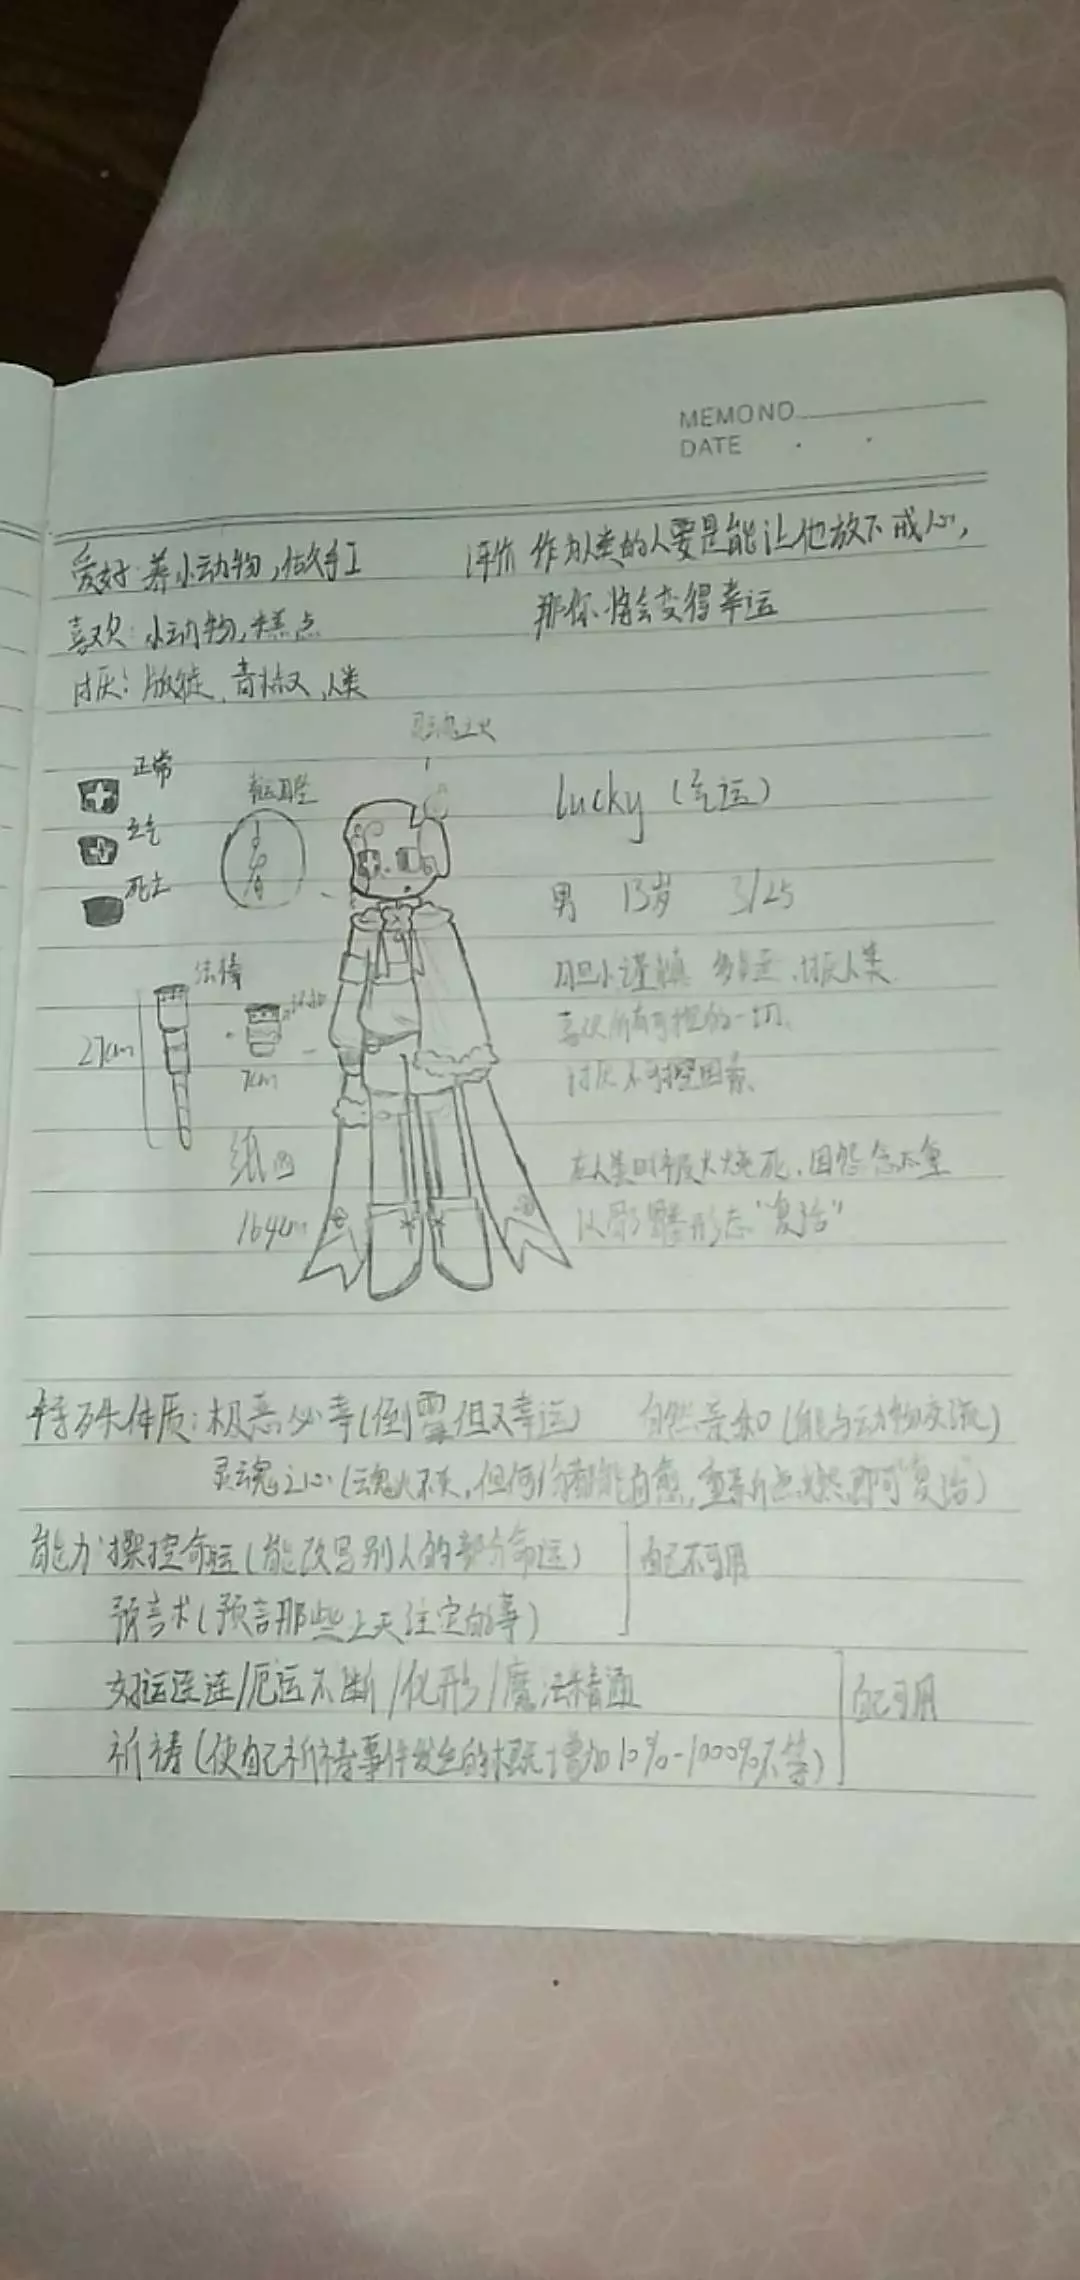 MEMO NO
DATE
爱好:养小动物,做手工
评价 作为人类的人要是能让他放下戒心,
那你将会变得幸运
喜欢:小动物,糕点
讨厌: 青椒,人类
灵魂之火
正常
生气
死亡
幸运耳坠
lucky (幸运)
男 13岁 3/25
胆小谨慎 讨厌人类
喜欢所有可控的一切,
讨厌不可控因素
法棒
27cm
7cm
164cm
在人类时被火烧死,因怨念太重
以骷髅形态“复活”
特殊体质:极恶必幸(倒霉但又幸运) 自然亲和(能与动物交流)
灵魂之心(魂火不灭,任何伤都能自愈,重新点燃即可“复活”)
能力:操控命运(能改写别人的部分命运)
自己不可用
预言术(预言那些上天注定的事)
好运连连/厄运不断/化形/魔法精通
自己可用
祈祷(使自己祈祷事件发生的概率增加10%-1000%不等)